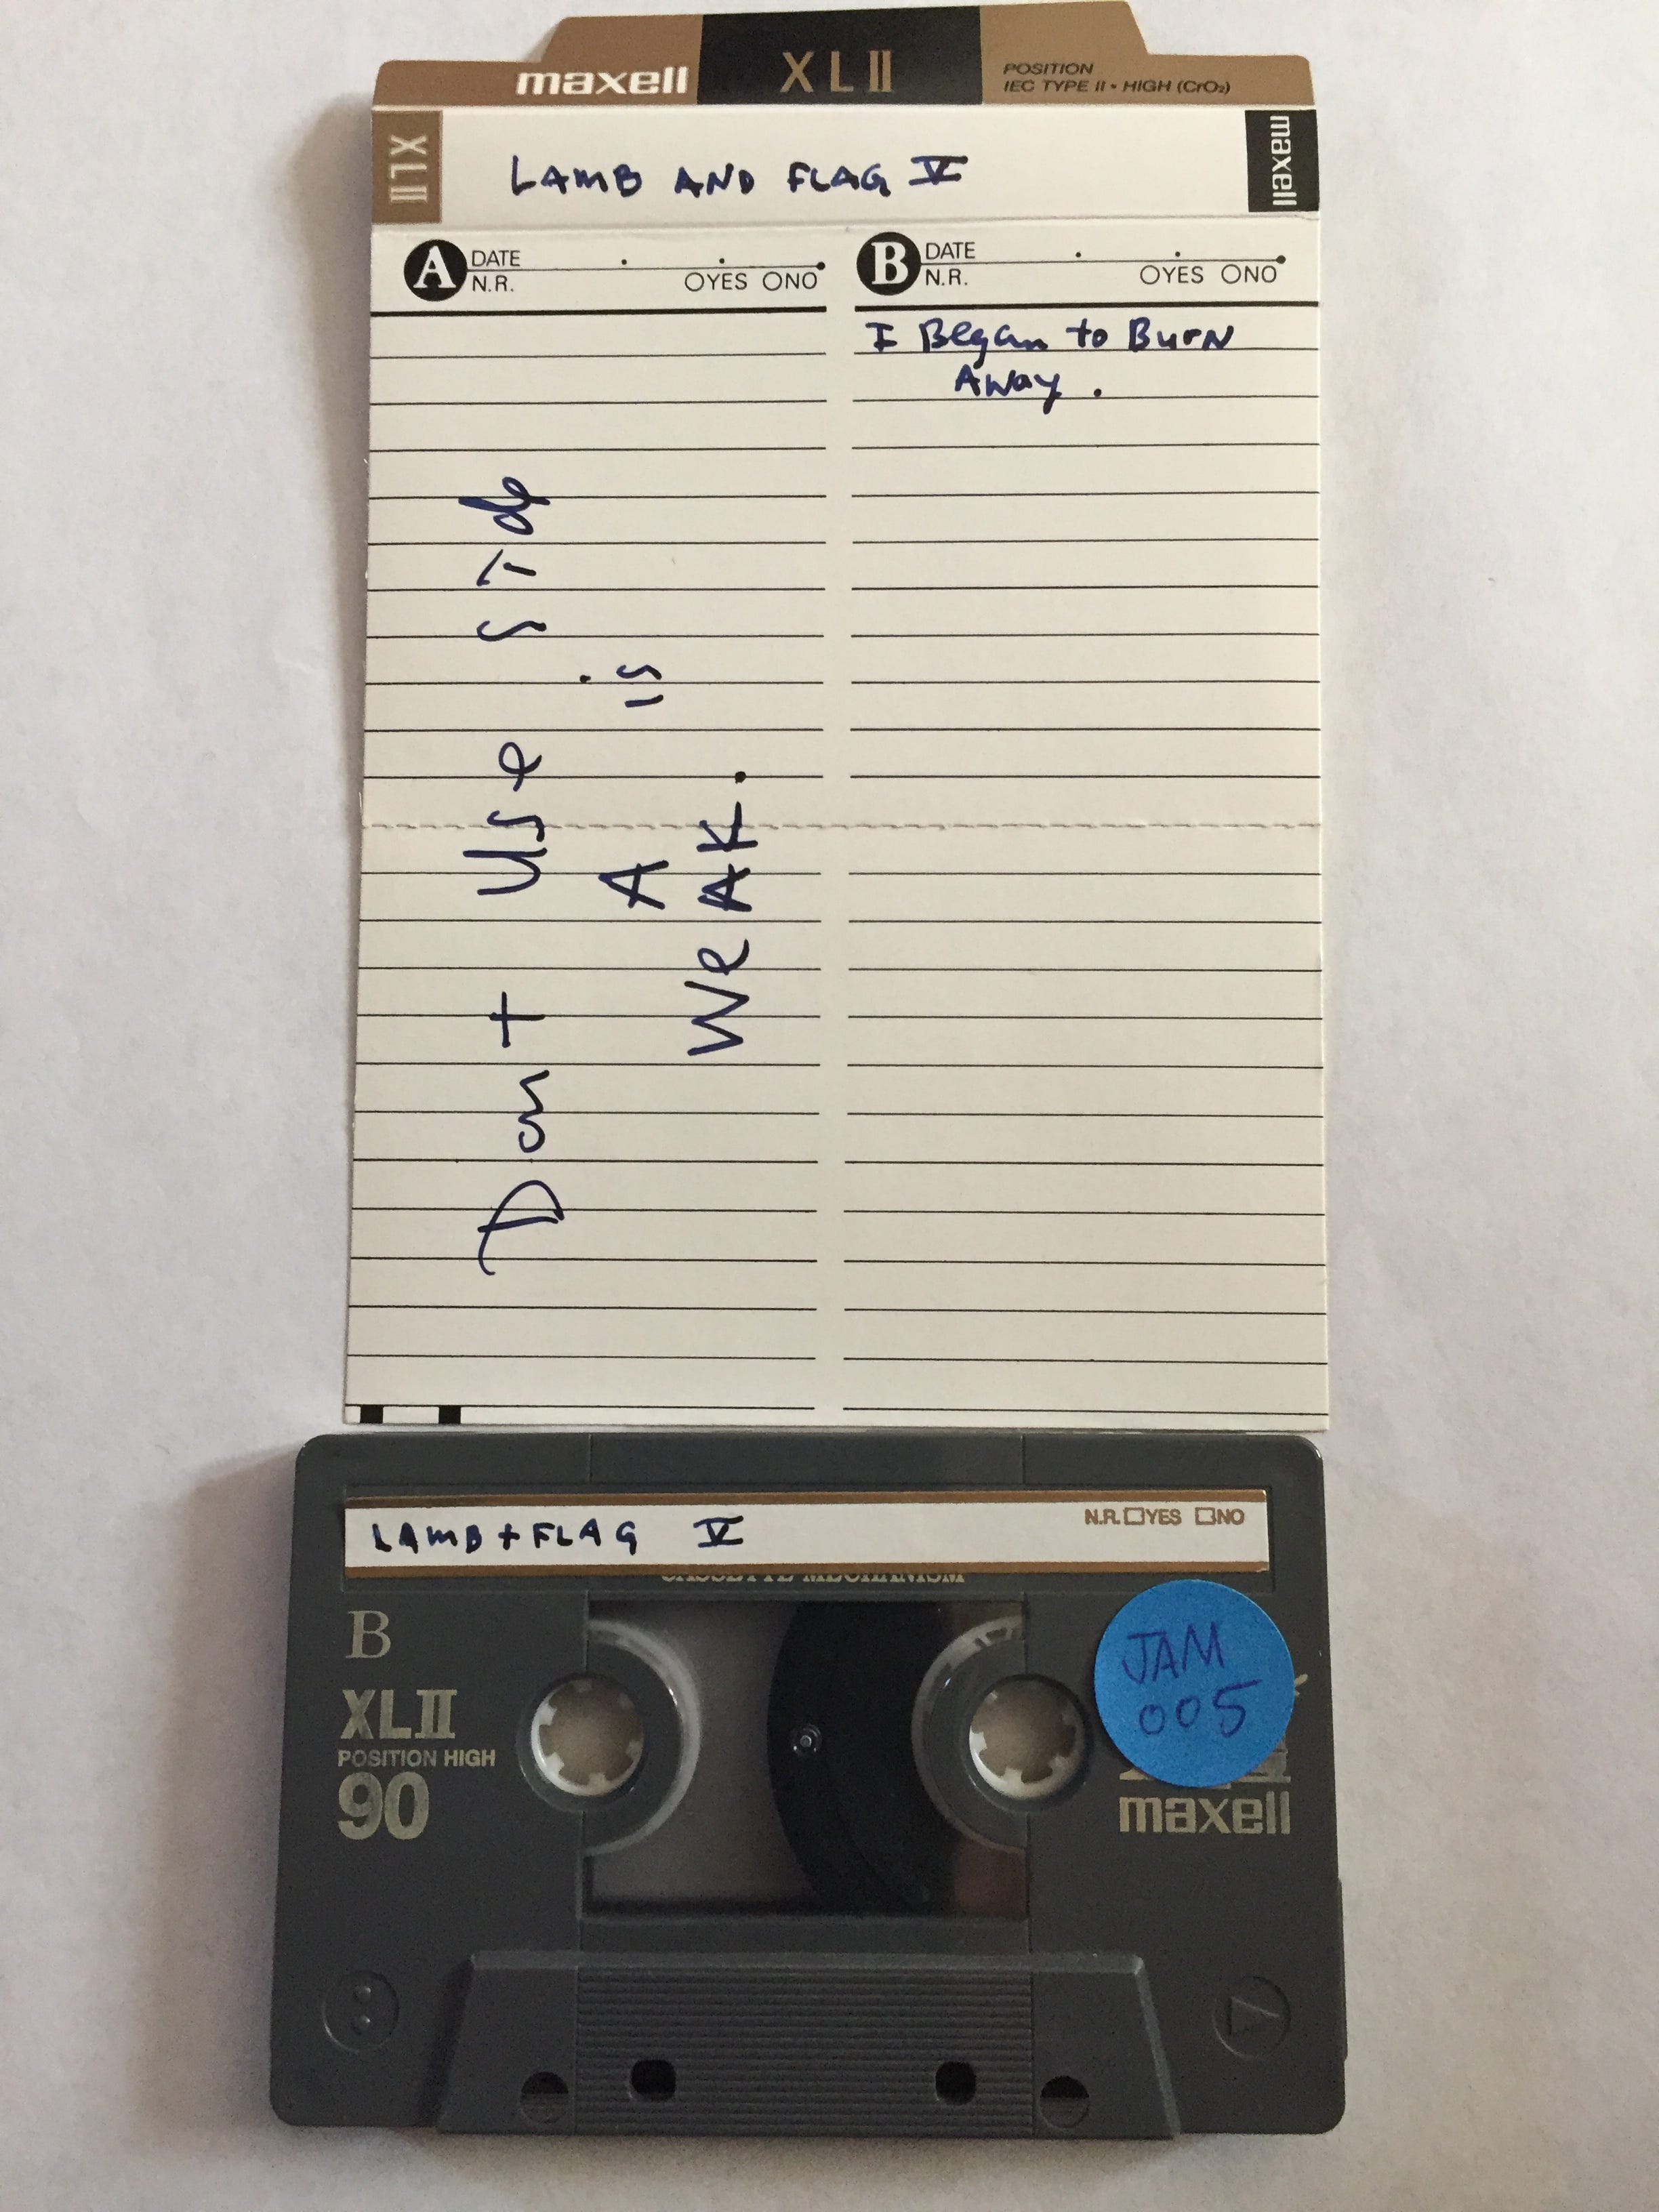 maxell XLII POSITION
IEC TYPE II • HIGH (CrO₂)
XLII LAMB AND FLAG V maxell
A DATE
N.R. OYES ONO
B DATE
N.R. OYES ONO
I Began to BurN
AWay.
Dont Use SIde
A is
WeAK.
LAMB + FLAG V N.R. □YES □NO
CASSETTE MECHANISM
B
XLII
POSITION HIGH
90
JAM
005
maxell